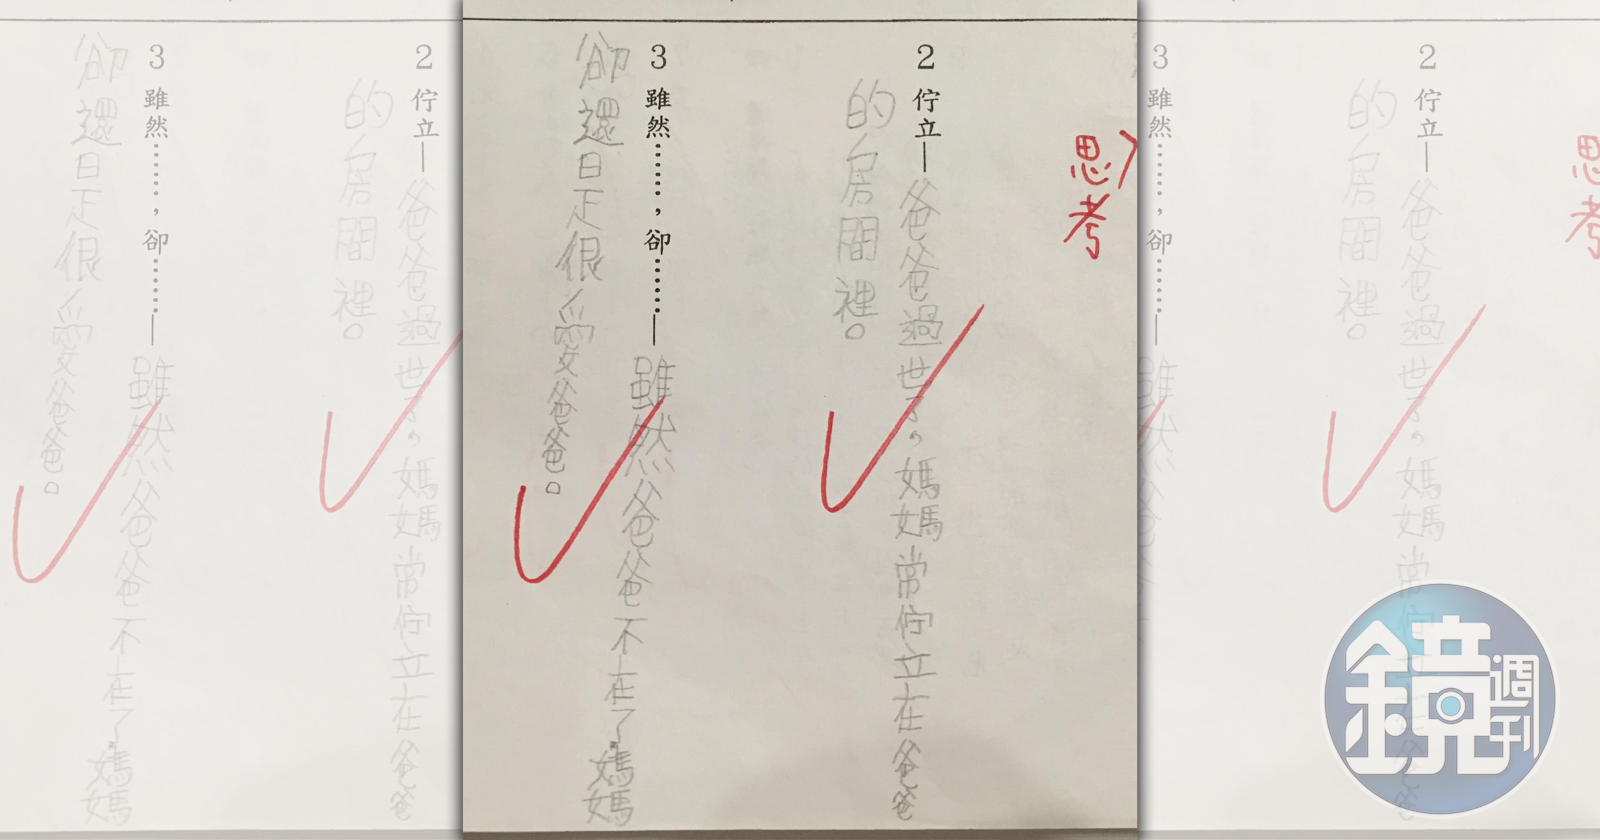 思考
2 佇立—爸爸過世了，媽媽常佇立在爸爸
的房間裡。
3 雖然……，卻……—雖然爸爸不在了媽媽
卻還是很愛爸爸。
鏡週刊